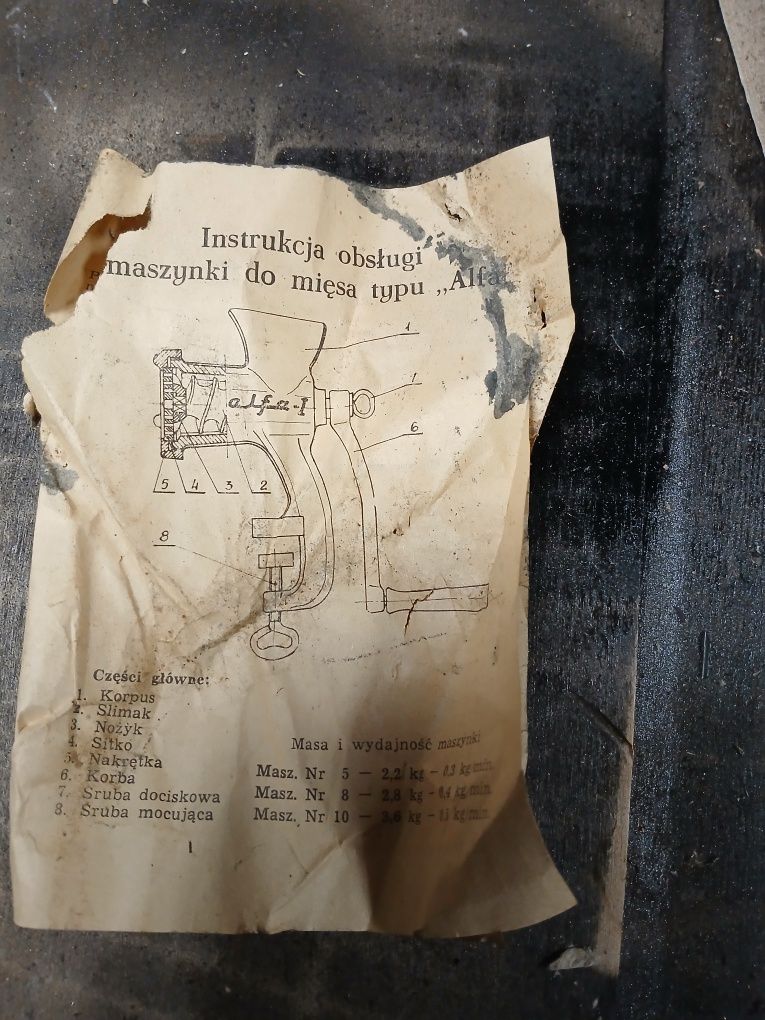 Instrukcja obsługi
maszynki do mięsa typu „Alfa
1
alfa-I
6
5 4 3 2
8
Części główne:
1. Korpus
2. Ślimak
3. Nożyk
4. Sitko
5. Nakrętka
6. Korba
7. Śruba dociskowa
8. Śruba mocująca
Masa i wydajność maszynki
Masz. Nr 5 — 2,2 kg — 0,3 kg/min.
Masz. Nr 8 — 2,8 kg — 0,4 kg/min.
Masz. Nr 10 — 3,6 kg — kg/min.